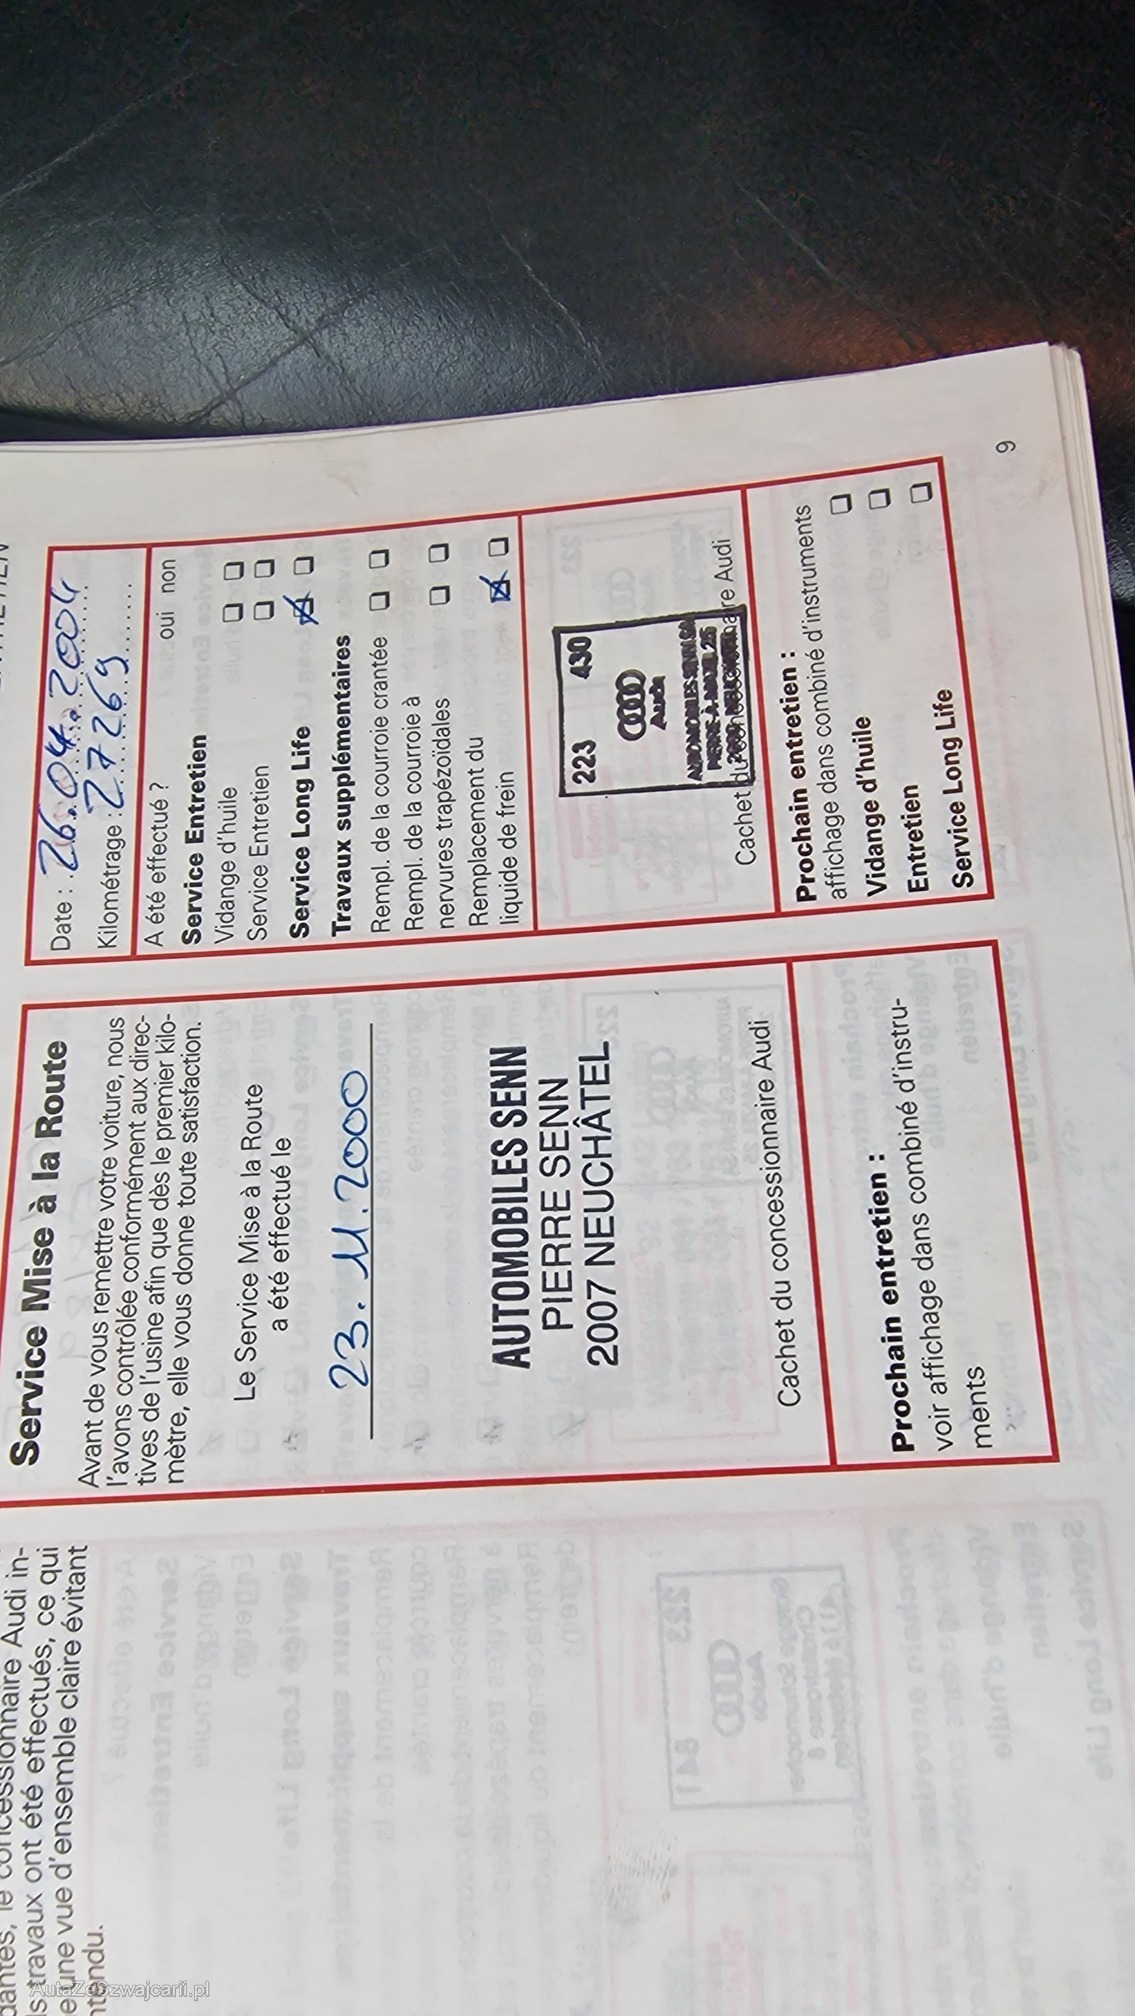 Audi in-
le concessionnaire
ls travaux ont été effectués, ce qui
e une vue d'ensemble claire évitant
Service Mise à la Route
Avant de vous remettre votre voiture, nous
l'avons contrôlée conformément aux direc-
tives de l'usine afin que dès le premier kilo-
mètre, elle vous donne toute satisfaction.
Le Service Mise à la Route
a été effectué le
23. 11. 2000
AUTOMOBILES SENN
PIERRE SENN
2007 NEUCHÂTEL
Cachet du concessionnaire Audi
Prochain entretien :
voir affichage dans combiné d'instru-
ments
Date : 26.04.2004
Kilométrage : 27269
A été effectué ? oui non
Service Entretien
Vidange d'huile
Service Entretien
Service Long Life
Travaux supplémentaires
Rempl. de la courroie crantée
Rempl. de la courroie à
nervures trapézoïdales
Remplacement du
liquide de frein
223 430
Audi
AUTOMOBILES SENN SA
PIERRE-À-MAZEL 25
Cachet du Audi
Prochain entretien :
affichage dans combiné d'instruments
Vidange d'huile
Entretien
Service Long Life
9
AutaZeSzwajcarii.pl